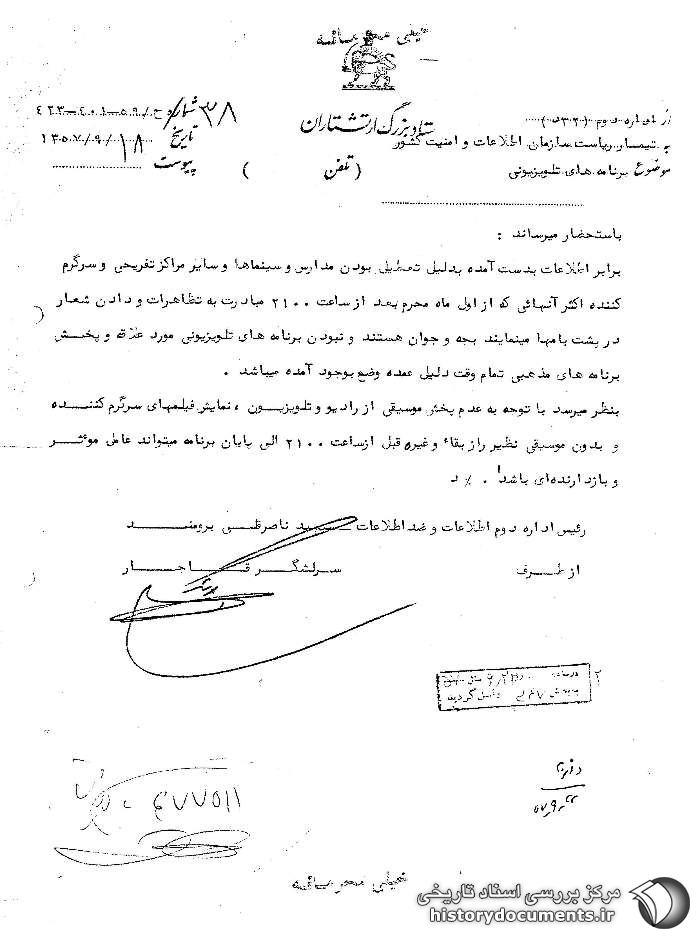 خیلی محرمانه
از اداره دوم (۵۳۲۰)
ستاد بزرگ ارتشتاران
شماره ۳۸/ح/۵۹-۴۰۱-۴۲۳
به تیمسار ریاست سازمان اطلاعات و امنیت کشور
تاریخ ۱۳۵۷/۹/۱۸
موضوع برنامه های تلویزیونی
( تلفن )
پیوست
باستحضار میرساند :
برابر اطلاعات بدست آمده بدلیل تعطیل بودن مدارس و سینماها و سایر مراکز تفریحی و سرگرم
کننده اکثر آنهائی که از اول ماه محرم بعد از ساعت ۲۱۰۰ مبادرت به تظاهرات و دادن شعار
در پشت بامها مینمایند بچه و جوان هستند و نبودن برنامه های تلویزیونی مورد علاقه و پخش
برنامه های مذهبی تمام وقت دلیل عمده وضع بوجود آمده میباشد .
بنظر میرسد با توجه به عدم پخش موسیقی از رادیو و تلویزیون ، نمایش فیلمهای سرگرم کننده
و بدون موسیقی نظیر راز بقاء و غیره قبل از ساعت ۲۱۰۰ الی پایان برنامه میتواند عاملی موثر
و بازدارنده‌ای باشد . ٪ د
رئیس اداره دوم اطلاعات و ضد اطلاعات سپهبد ناصرقلی برومند
از طرف سرلشگر قاجار
۲
گردید
۴۷۷۵۱۱
خیلی محرمانه
مرکز بررسی اسناد تاریخی
historydocuments.ir